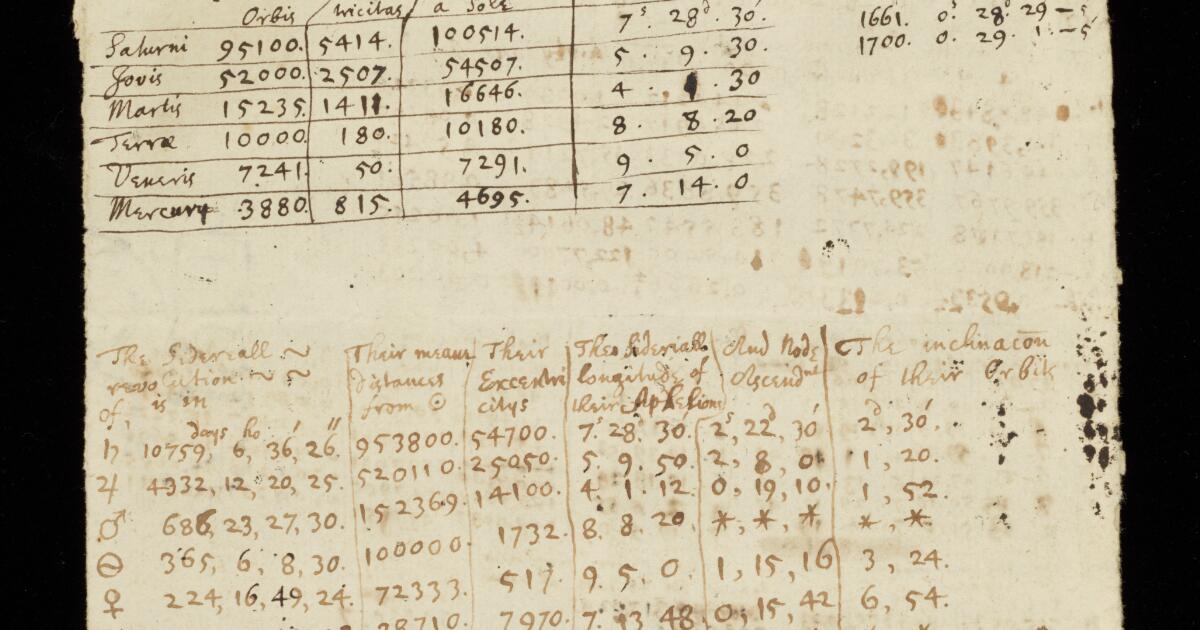 Orbis tricitas a Sole
7ˢ. 28ᵈ. 30′. 1661. 0ˢ 28ᵈ 29 – 5
Saturni 95100. 5414. 100514. 5. 9. 30. 1700. 0. 29. 1. – 5
Jovis 52000. 2507. 54507. 4. 30
Martis 15235. 1411. 16646. 8. 8. 20
Terræ 10000. 180. 10180. 9. 5. 0
Veneris 7241. 50. 7291. 7. 14. 0
Mercury 3880. 815. 4695.
The Sidereall ~ Their meane Their The Sidereall And Node The inclinacōn
revolution ~ ~ Distances Excentri longitude of Ascendⁿᵗ of their Orbits
of, is in from ☉ citys their Aphelions
days ho ′ ″
♄ 10759, 6, 36, 26. 953800. 54700. 7ˢ. 28. 30′. 2ˢ, 22ᵈ, 30′ 2ᵈ, 30′.
♃ 4332, 12, 20, 25. 520110. 25050. 5. 9. 50. 2, 8, 0 1, 20.
♂ 686, 23, 27, 30. 152369. 14100. 4. 1. 12. 0, 19, 10. 1, 52.
⊖ 365, 6, 8, 30. 100000. 1732. 8. 8. 20 *, *, * *, *.
♀ 224, 16, 49, 24. 72333. 517. 9. 5. 0. 1, 15, 16 3, 24.
38710. 7970. 7. 13. 48. 0, 15, 42 6, 54.